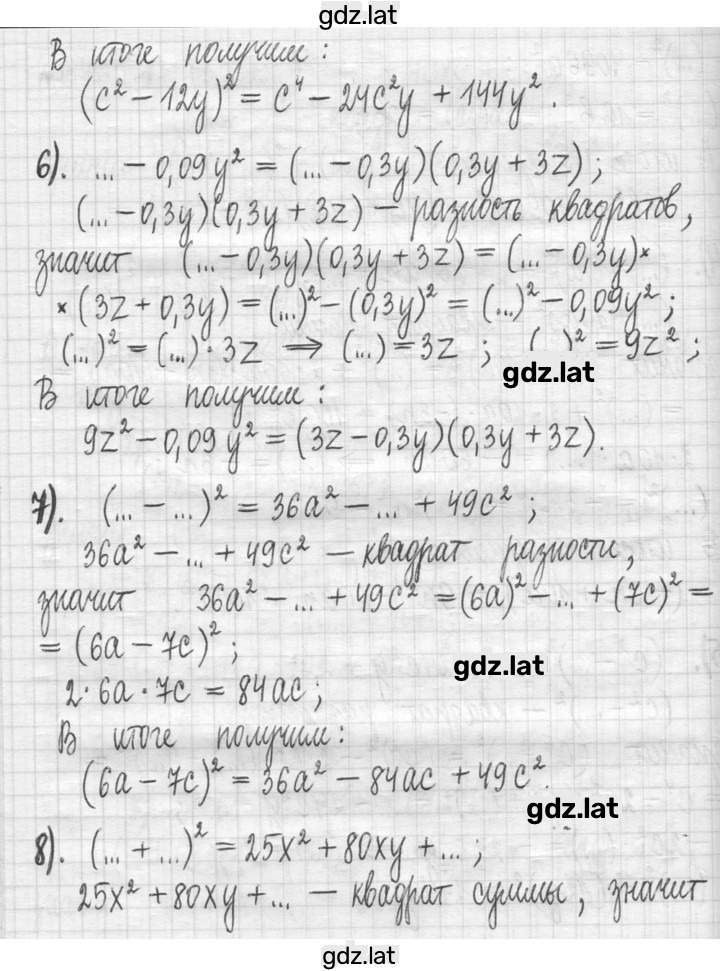 gdz.lat
В итоге получим:
(c² − 12y)² = c⁴ − 24c²y + 144y².
6). ... − 0,09y² = (... − 0,3y)(0,3y + 3z);
(... − 0,3y)(0,3y + 3z) — разность квадратов,
значит (... − 0,3y)(0,3y + 3z) = (... − 0,3y)×
× (3z + 0,3y) = (...)² − (0,3y)² = (...)² − 0,09y²;
(...)² = (...) · 3z ⇒ (...) = 3z ; ( )² = 9z²;
gdz.lat
В итоге получим:
9z² − 0,09y² = (3z − 0,3y)(0,3y + 3z).
7). (... − ...)² = 36a² − ... + 49c²;
36a² − ... + 49c² — квадрат разности,
значит 36a² − ... + 49c² = (6a)² − ... + (7c)² =
= (6a − 7c)²;
gdz.lat
2 · 6a · 7c = 84ac;
В итоге получим:
(6a − 7c)² = 36a² − 84ac + 49c².
gdz.lat
8). (... + ...)² = 25x² + 80xy + ...;
25x² + 80xy + ... — квадрат суммы, значит
gdz.lat